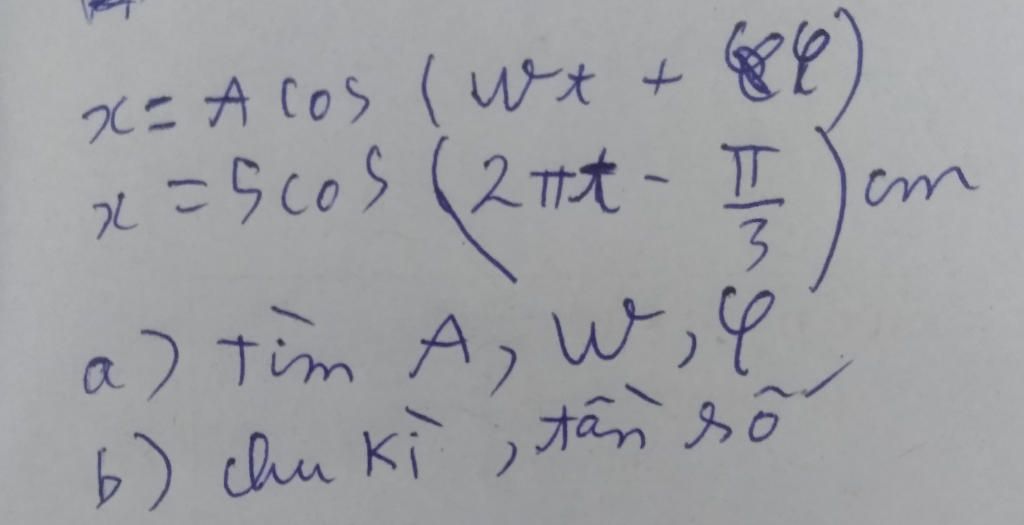 x = A cos (wt + φ)
x = 5 cos (2πt - π/3) cm
a) tìm A, w, φ
b) chu kì, tần số